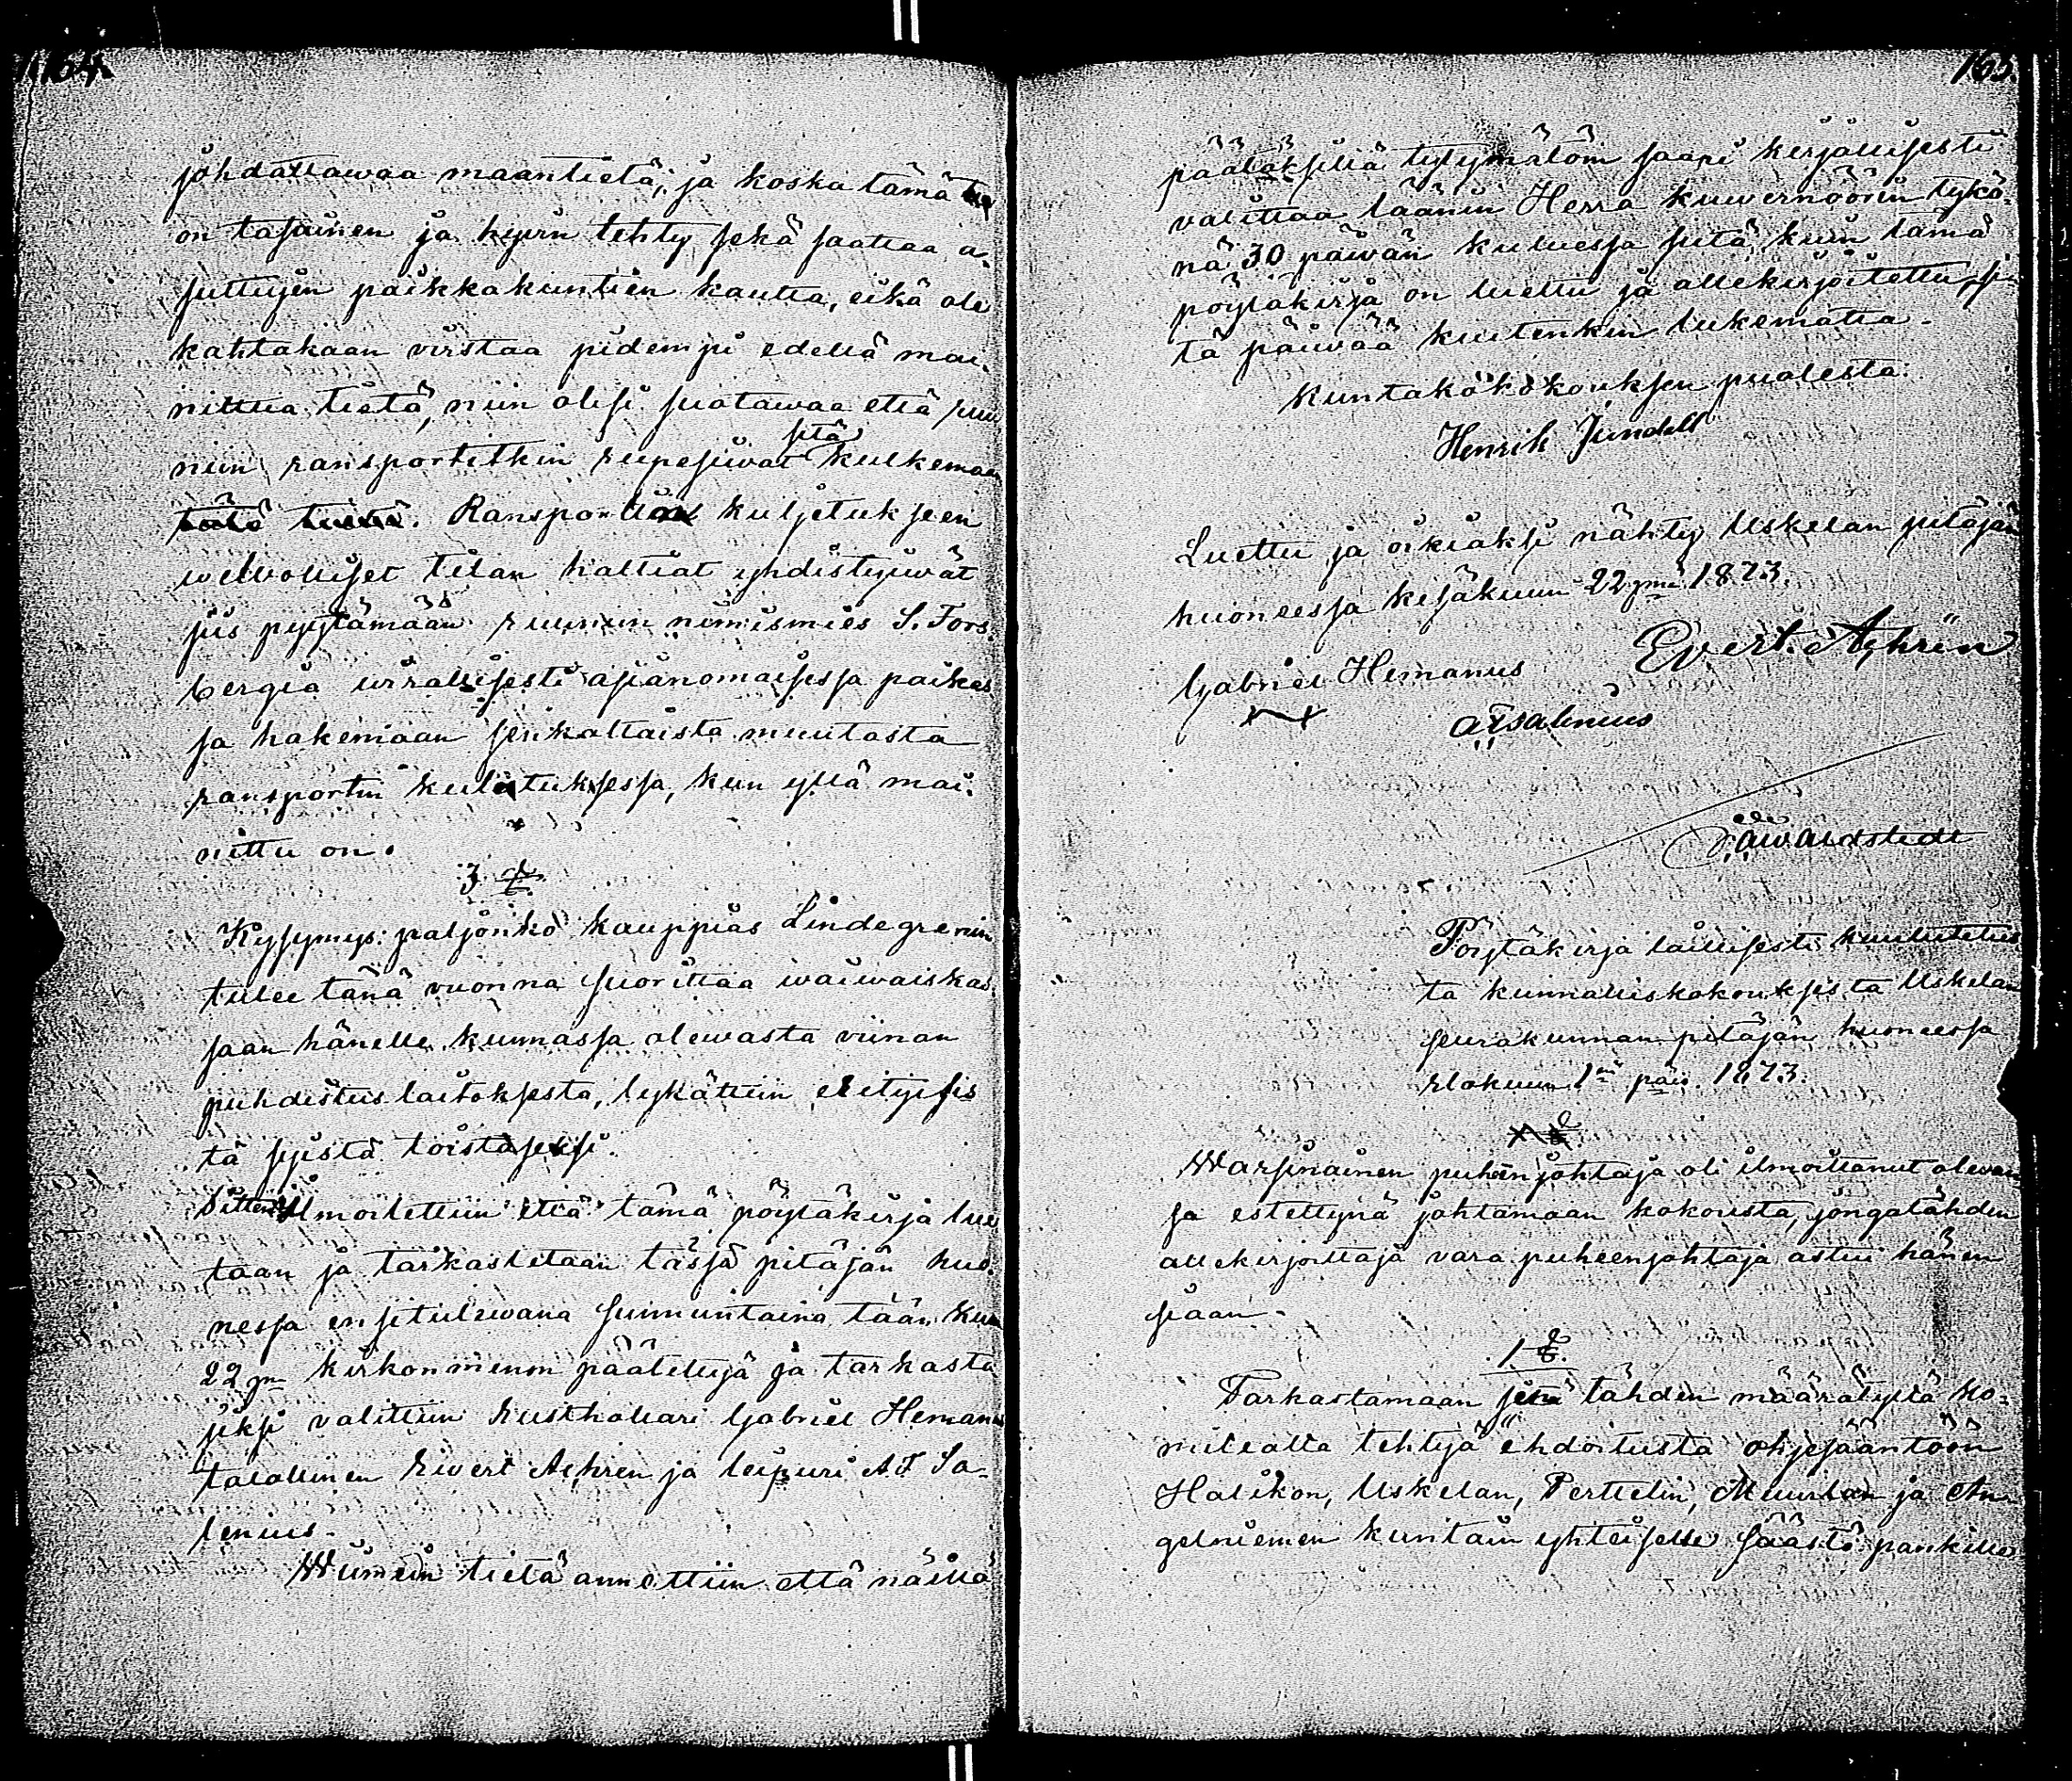 164.
johdattawaa maantietä; ja koska tämä tie
on tasainen ja hywin tehty sekä saattaa a-
suttujen paikkakuntien kautta, eikä ole
kahtakaan virstaa pidempi edellä mai-
nittua tietä, niin olisi suotawaa että ruu
niin ransportitkin rupesiwat sitä kulkemaan
Ransportin kuljetukseen
welwolliset tilan haltiat yhdistyiwät
siis pyytämään ruunun nimismies S. Fors-
bergiä wirallisesti asianomaisessa paikas
sa hakemaan senkaltaista muutosta
ransportin kuletuksessa, kun yllä mai-
nittu on.
3 §.
Kysymys: paljonko kauppias Lindegrenin
tulee tänä vuonna suorittaa waiwaiskas-
saan hänelle kunnassa olewasta viinan
puhdistus laitoksesta, lykättiin erityisis
tä syistä toistaseksi.
Sitten ilmoitettiin että tämä pöytäkirja lue
taan ja tarkastetaan tässä pitäjän huo-
nessa ensitulewana sunnuntaina tään kuu
22 pn kirkonmenon päätettyä ja tarkasta
jiksi valittiin Rusthollari Gabriel Hemanus
talollinen Eivert Achren ja leipuri A F Sa-
lenius.
Wiimein tietä annettiin että näillä
165.
päätöksillä tytymätöin saapi kirjallisesti
valittaa läänin Herra kuvernöörin tykö-
nä 30 päivän kuluessa siitä, kuin tämä
pöytäkirja on luettu ja allekirjoitettu, si-
tä päivää kuitenkin lukematta.
Kuntakökokouksen puolesta:
Henrik Jundell
Luettu ja oikiaksi nähty Uskelan pitäjän
huoneessa kesäkuun 22 pnä 1873.
Evert Achrén
Gabriel Hemanus
A F Salenius
A W Ahlstedt
Pöytäkirja laillisesti kuulutetus
ta kunnalliskokouksesta Uskelan
seurakunnan pitäjän huoneessa
elokuun 1nä päiv. 1873.
§
Warsinainen puhenjohtaja oli ilmoittanut olevan
sa estettynä johtamaan kokousta, jongatähden
allekirjoittaja vara puheenjohtaja astui hänen
siaan.
1 §.
Tarkastamaan sitä tähden määrätyltä ko-
mitealta tehtyjä ehdoitusta ohjesääntöön
Halikon, Uskelan, Perttelin, Muurlan ja An-
gelniemen kuntain yhteiselle Säästö pankille